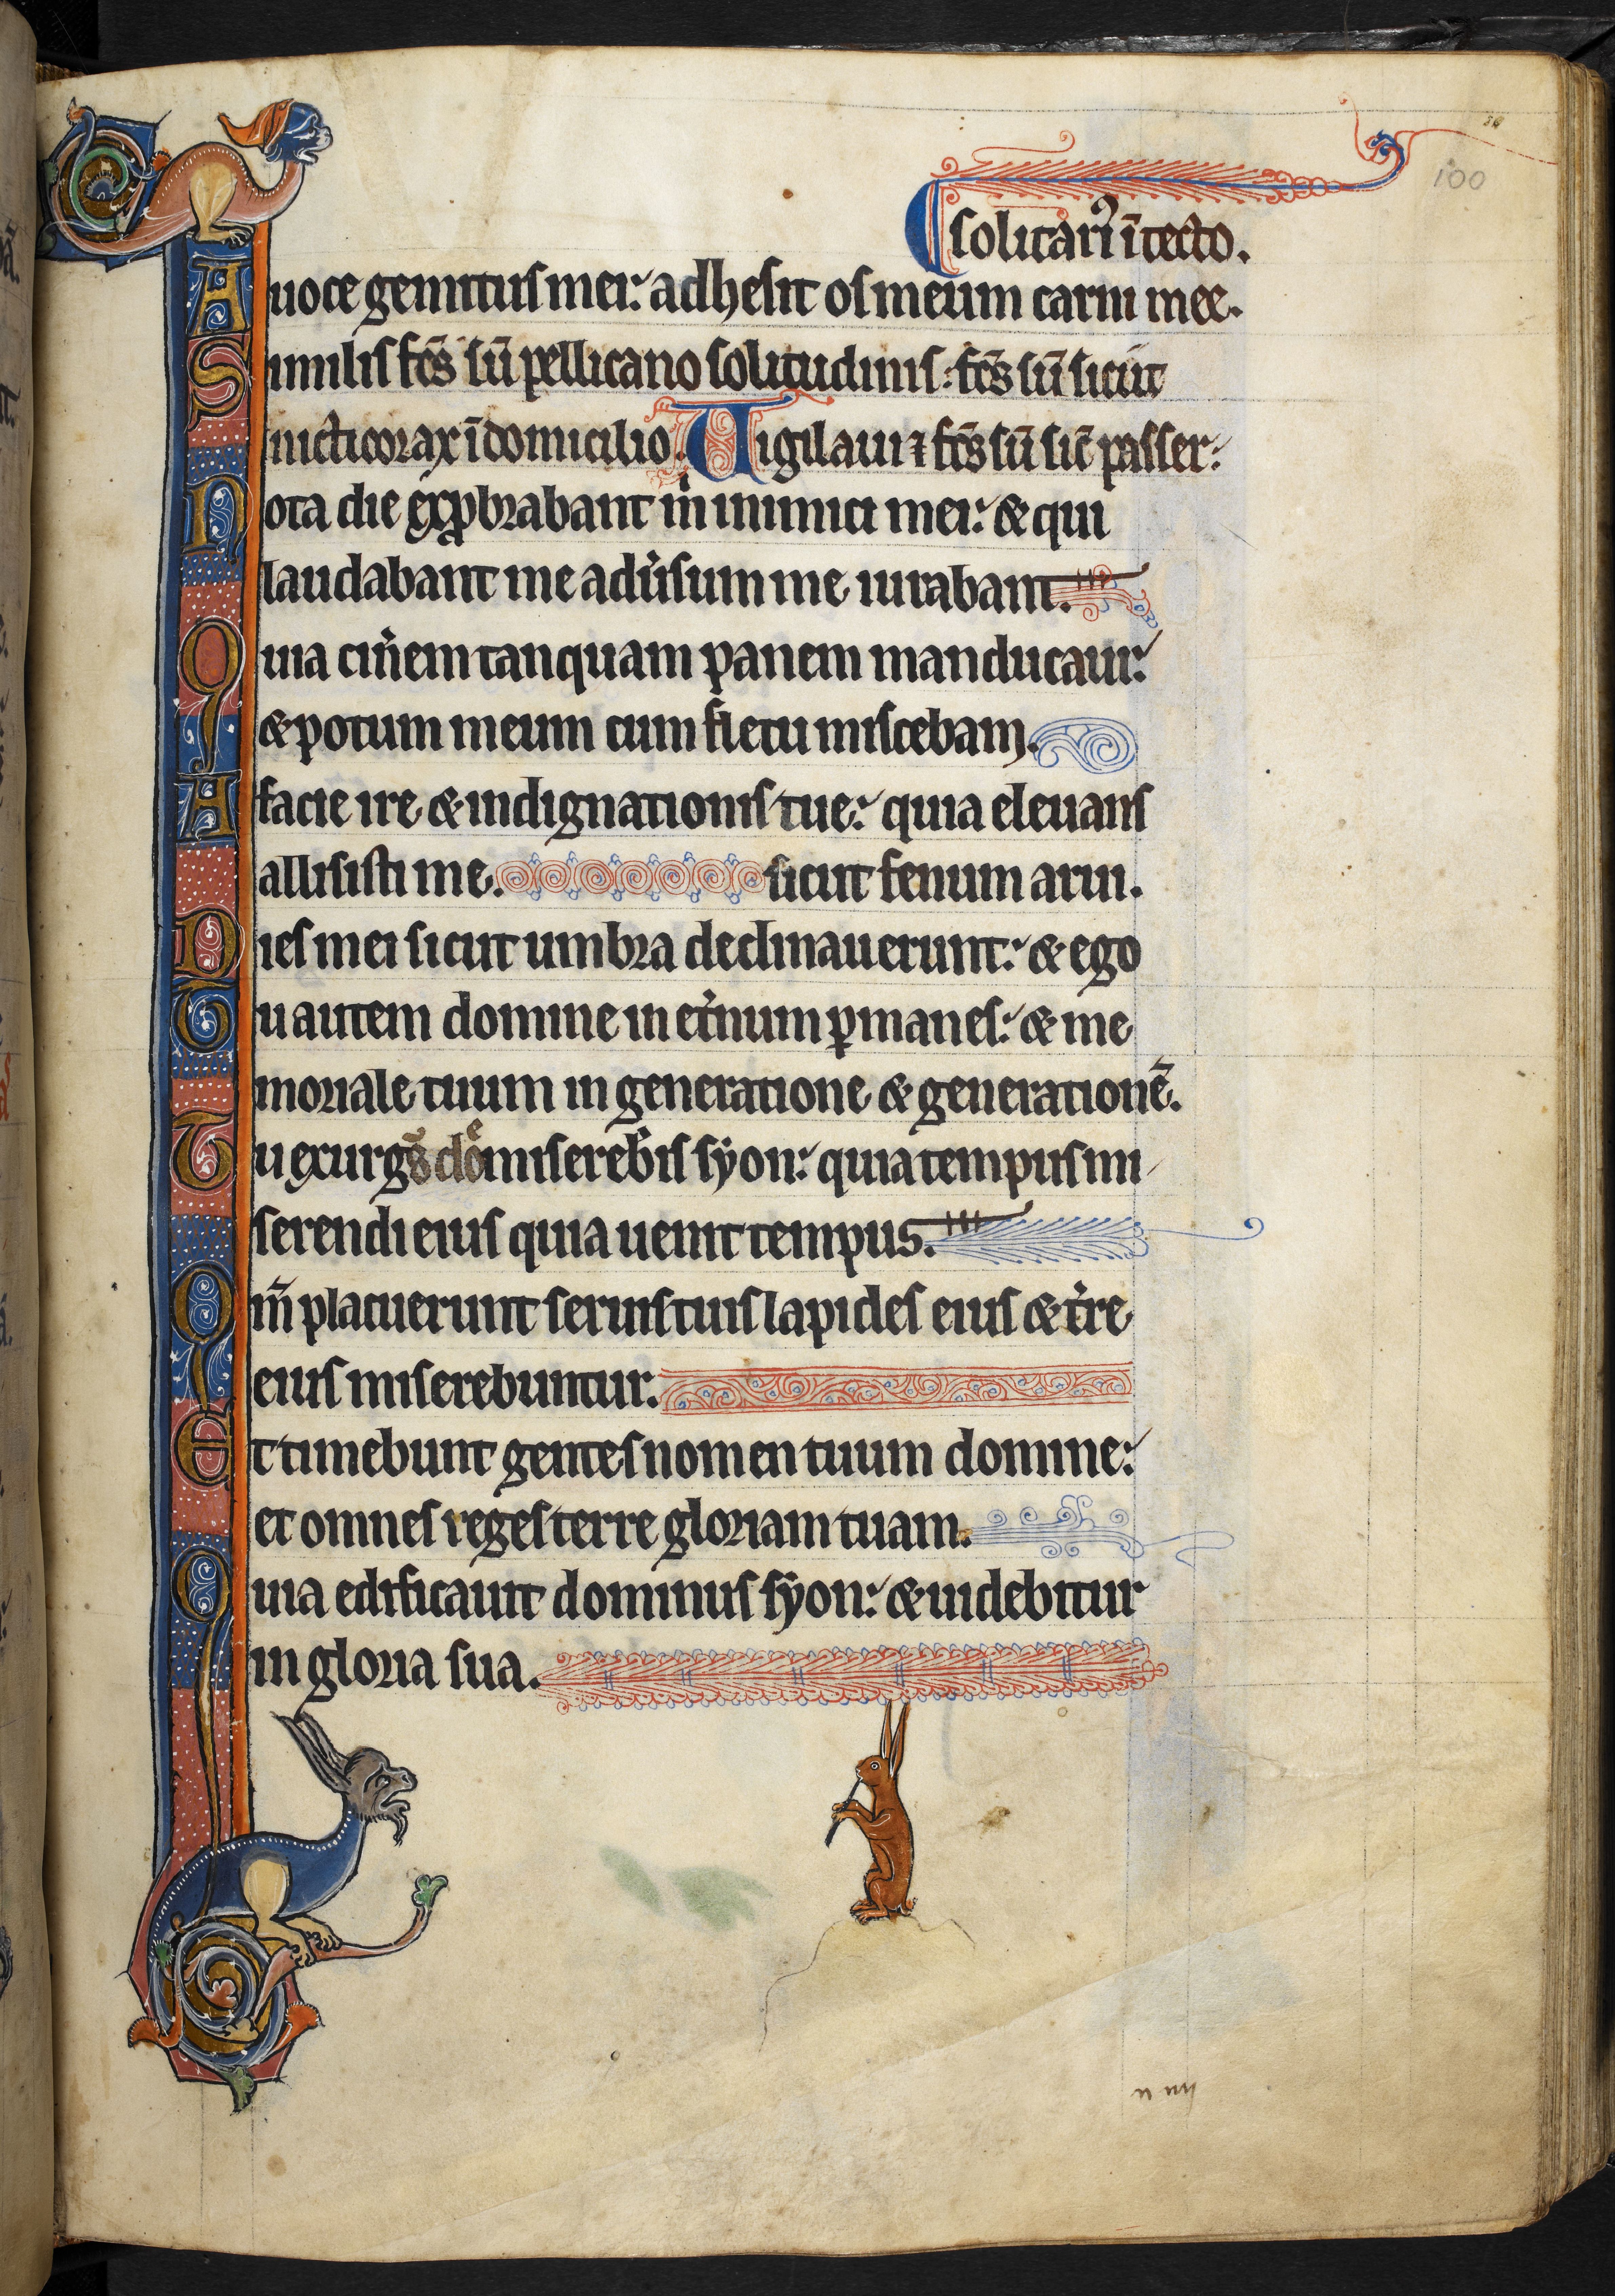 100
solitari᷒ ī tecto.
A uoce gemitus mei: adhesit os meum carni mee.
Similis fc̄s sū pellicano solitudinis: fc̄s sū sicut
nicticorax ī domicilio. Uigilaui ⁊ fc̄s sū sic̄ passer:
Tota die exꝓbrabant m̍ inimici mei: & qui
laudabant me adu̍sum me iurabant.
Quia cin̍em tanquam panem manducaui:
& potum meum cum fletu miscebam.
A facie ire & indignationis tue: quia eleuans
allisisti me. sicut fenum arui.
Dies mei sicut umbra declinauerunt: & ego
Tu autem domine in et̍num ꝑmanes: & me
moriale tuum in generatione & generationē.
Tu exurgēs dōe misereb̍is syon: quia tempus mi
serendi eius quia uenit tempus.
Qm̄ placuerunt seruis tuis lapides eius & t̍re
eius miserebuntur.
Et timebunt gentes nomen tuum domine:
et omnes reges terre gloriam tuam.
Quia edificauit dominus syon: & uidebitur
in gloria sua.